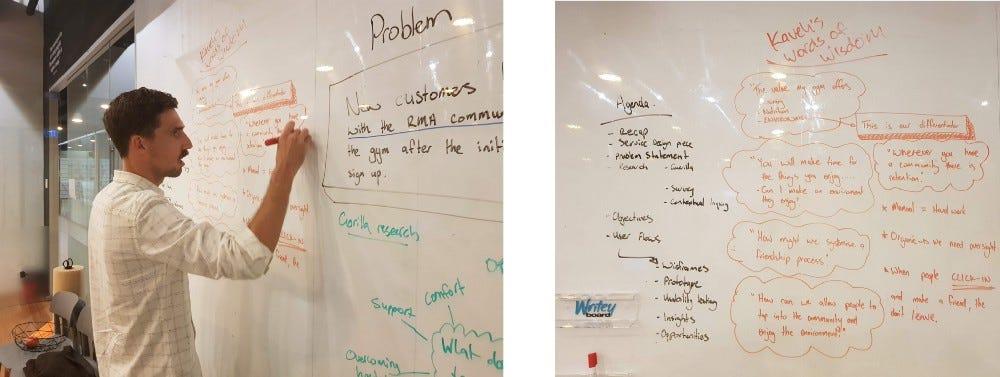 Kaveh's
words of
wisdom
Problem
New customers
with the RMA commu
the gym after the init
sign up.
This is our differentiator
"Wherever you
* Manual =
oversight
CLICK-IN
friend, the
Gorilla research
Support
Comfort
What do
Overcoming
Kaveh's
words of
wisdom
"The value my gym offers
Nutrition
Environment"
This is our differentiator
"Wherever you have
a community there is
retention."
"You will make time for
the things you enjoy....
- Can I make an environment
they enjoy"
* Manual = Hard work
"How might we systemise a
friendship process"
* Organic we need oversight
* When people CLICK-IN
and make a friend, the
don't leave.
"How can we allow people to
tap into the community and
enjoy the environment?"
Agenda -
- Recap
- Service Design piece
- Problem Statement
- Research - Guerilla
- Survey
- Contextual Inquiry
- Objectives
- User Flows
- Wireframes
- Prototype
- Usability testing
- Insights
- Opportunities
Writey
board